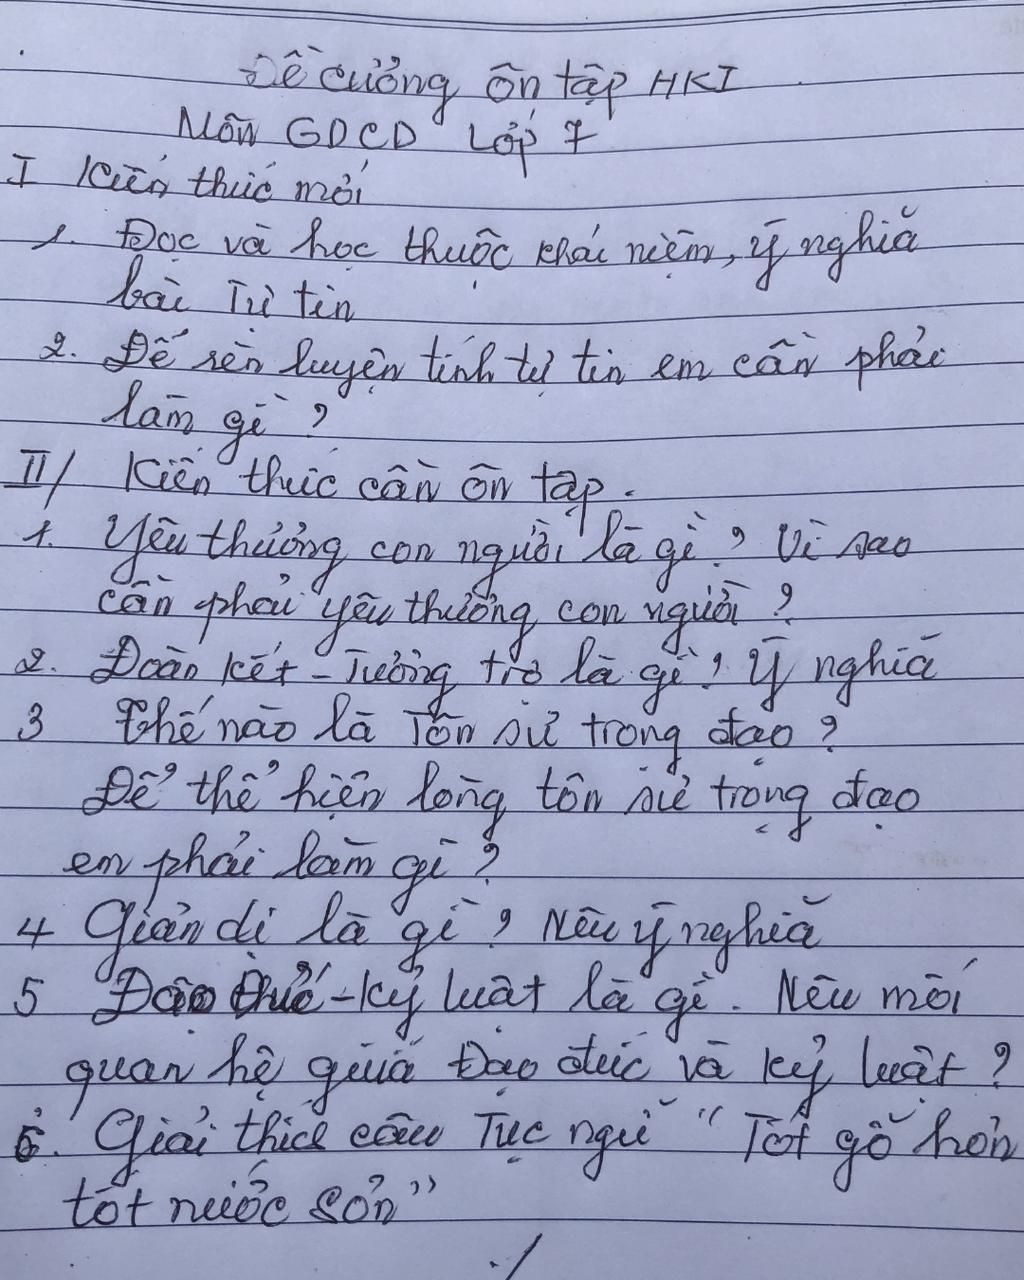 Đề cương ôn tập HKI
Môn GDCD Lớp 7
I Kiến thức mới
1. Đọc và học thuộc khái niệm, ý nghĩa
bài Tự tin
2. Để rèn luyện tính tự tin em cần phải
làm gì?
II/ Kiến thức cần ôn tập.
1. Yêu thương con người là gì? Vì sao
cần phải yêu thương con người?
2. Đoàn kết - Tương trợ là gì? Ý nghĩa
3 Thế nào là Tôn sư trọng đạo?
Để thể hiện lòng tôn sư trọng đạo
em phải làm gì?
4 Giản dị là gì? Nêu ý nghĩa
5 Đạo đức - kỷ luật là gì. Nêu mối
quan hệ giữa Đạo đức và kỷ luật?
6. Giải thích câu Tục ngữ "Tốt gỗ hơn
tốt nước sơn"
./